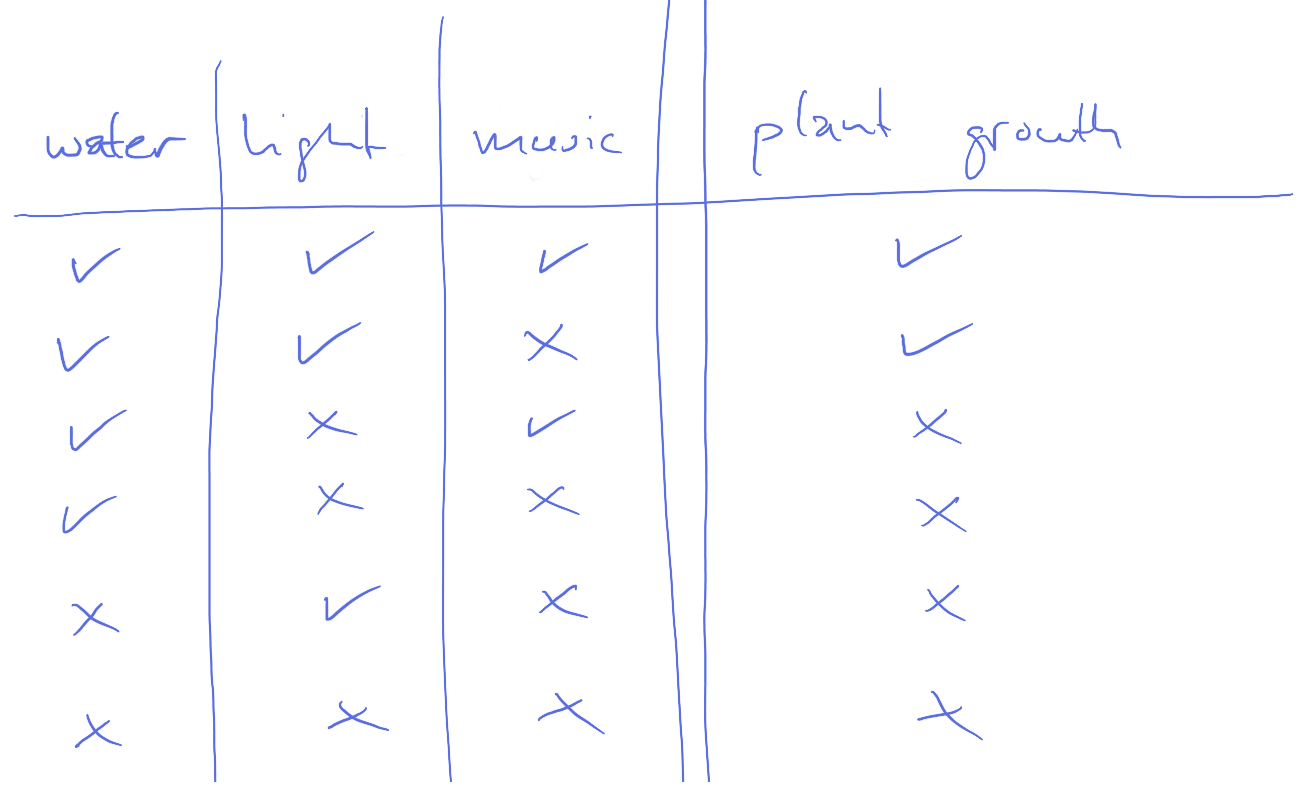 water light music plant growth
✓ ✓ ✓ ✓
✓ ✓ ✗ ✓
✓ ✗ ✓ ✗
✓ ✗ ✗ ✗
✗ ✓ ✗ ✗
✗ ✗ ✗ ✗